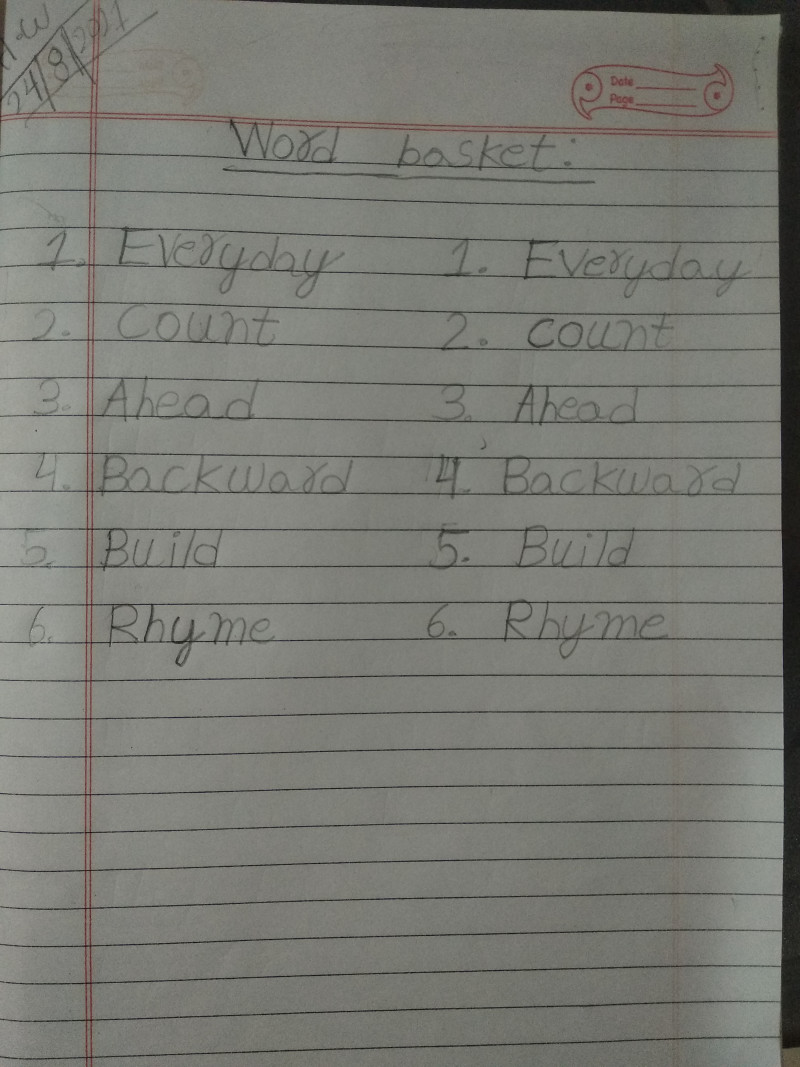 24/8/2021
Date
Page
Word basket:
1. Everyday 1. Everyday
2. Count 2. count
3. Ahead 3. Ahead
4. Backward 4. Backward
5. Build 5. Build
6. Rhyme 6. Rhyme